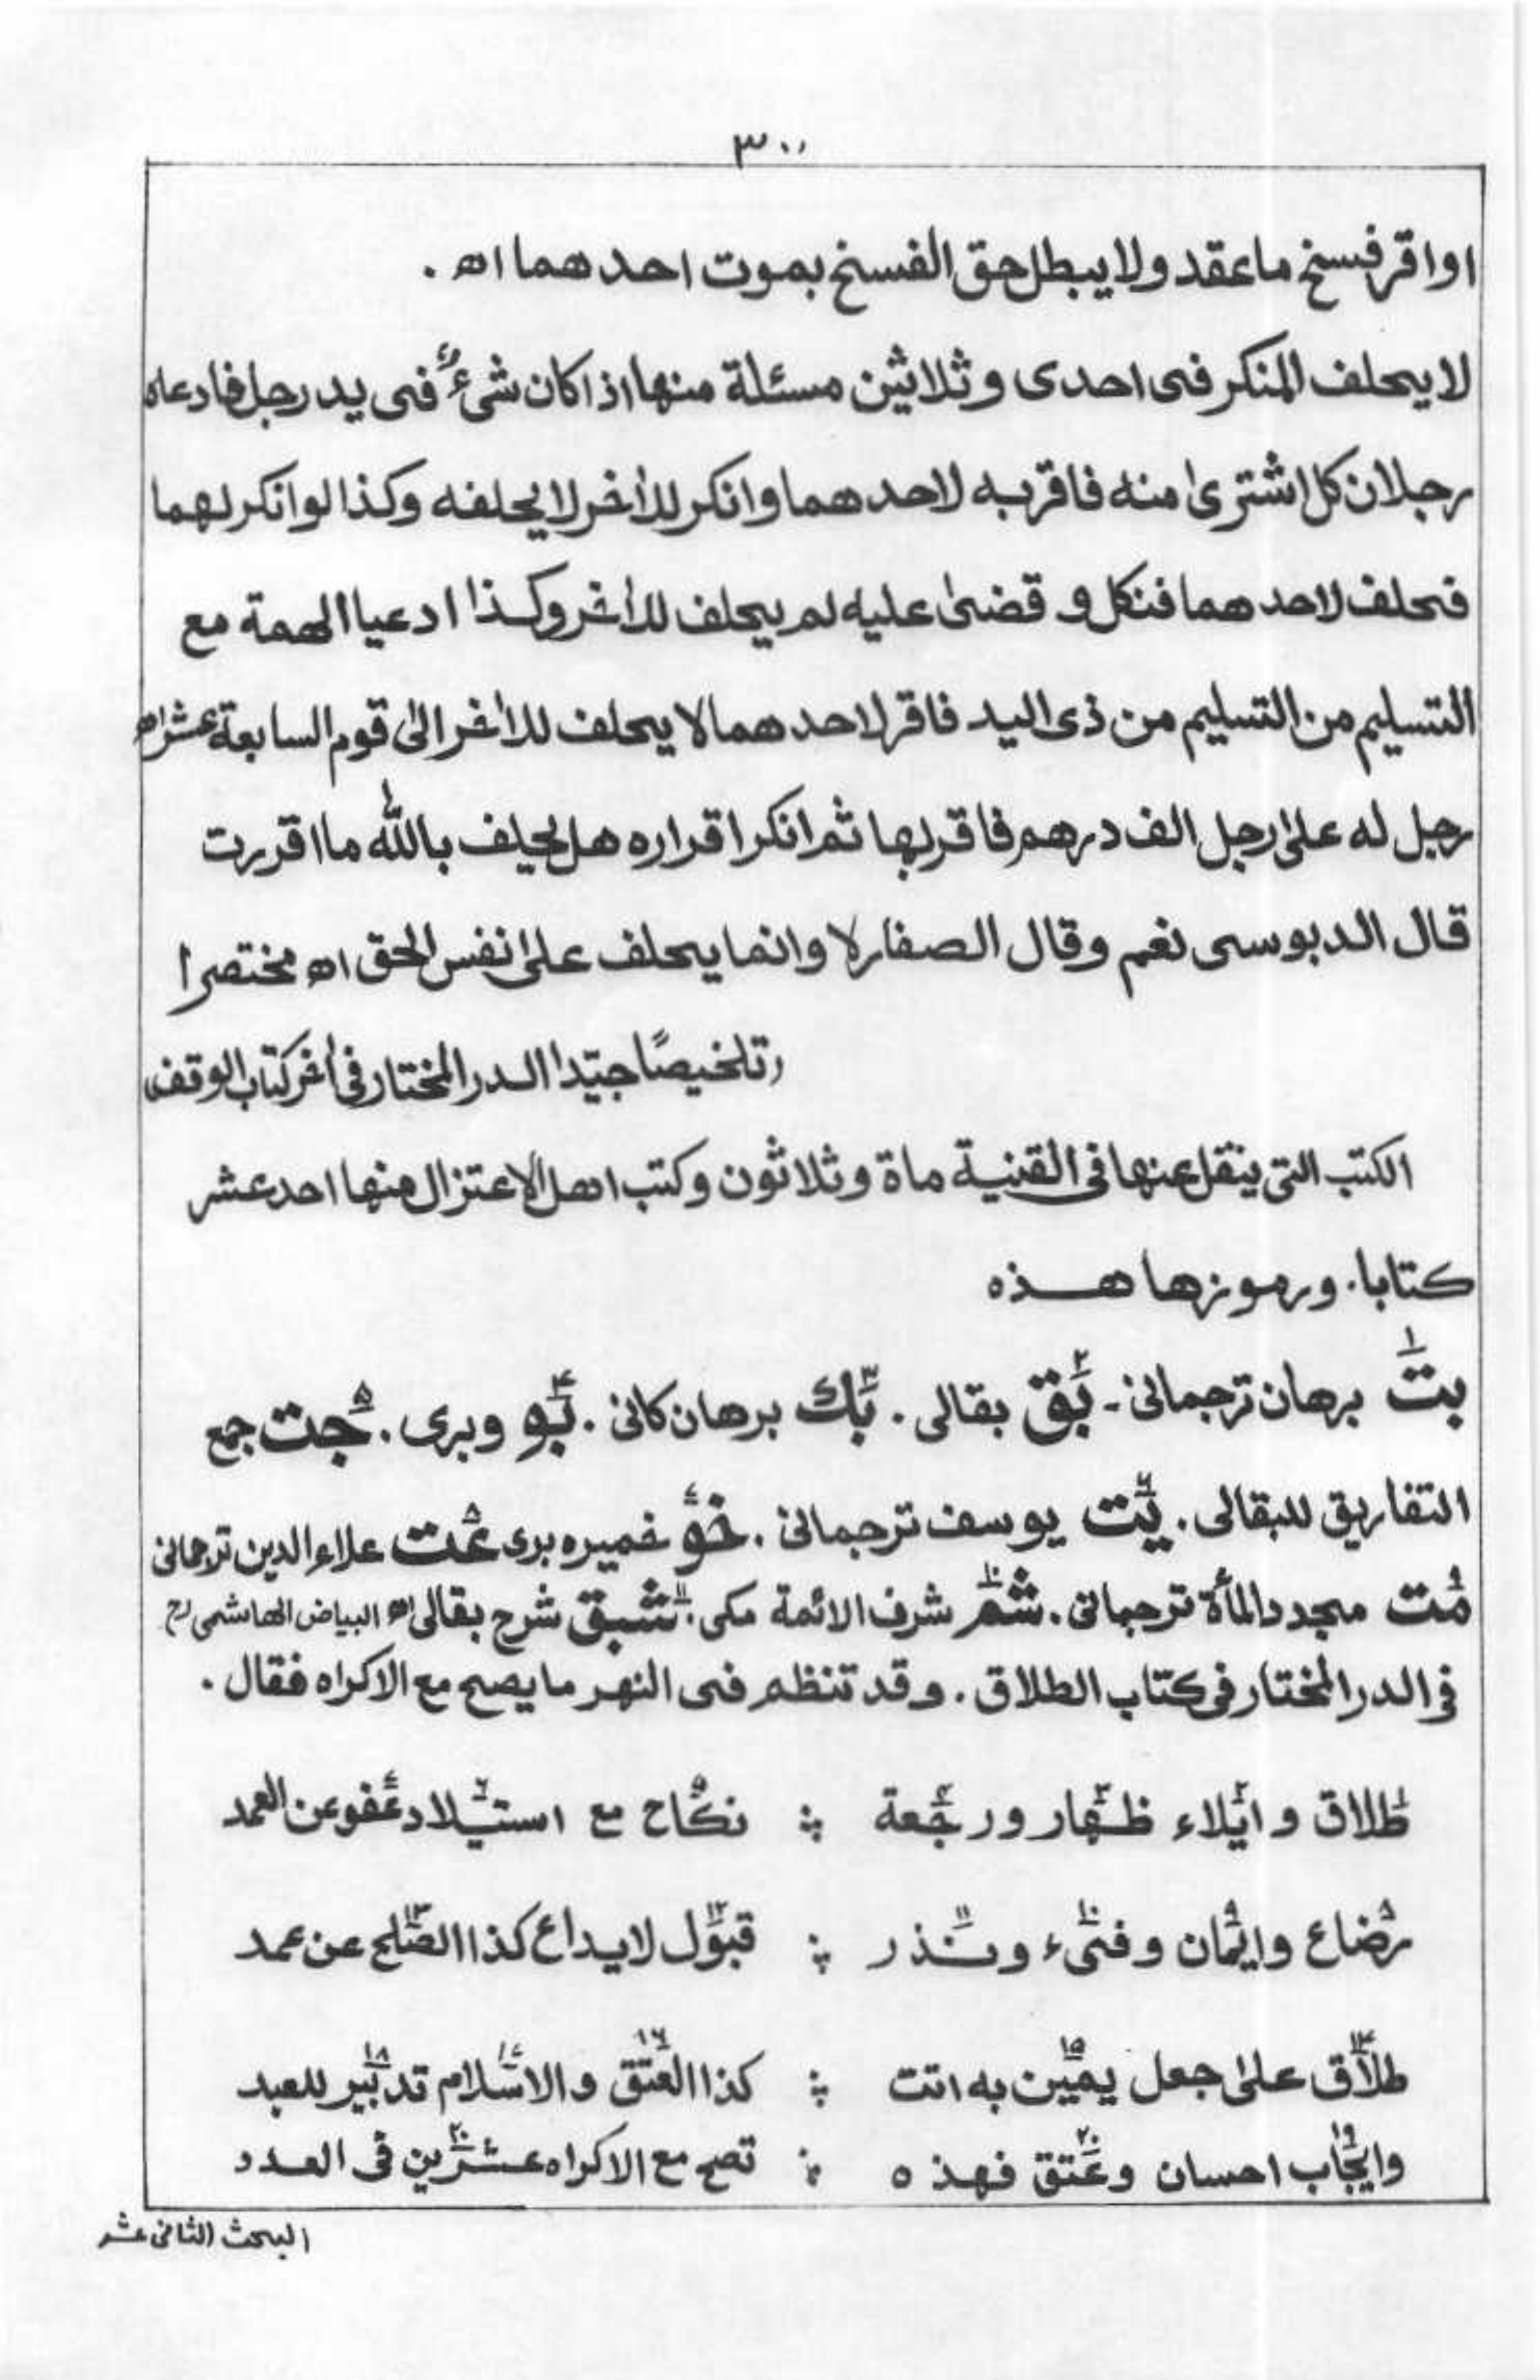 ٣٠٠
او اقر فسخ ما عقد ولا يبطل حق الفسخ بموت احدهما اھ .
لا يحلف المنكر فى احدى وثلاثين مسئلة منها اذا كان شئ فى يد رجل فادعاه
رجلان كل اشترى منه فاقر به لاحدهما وانكر للاخر لا يحلفه وكذا لو انكر لهما
فحلف لاحدهما فنكل و قضى عليه لم يحلف للاخر وكذا ادعيا الهمة مع
التسليم من التسليم من ذى اليد فاقر لاحدهما لا يحلف للاخر الى قوم السابعة عشر اھ
رجل له على رجل الف درهم فاقر بها ثم انكر اقراره هل يحلف بالله ما اقررت
قال الدبوسى نعم وقال الصفار لا وانما يحلف على نفس الحق اھ مختصرا
(تلخيصًا جيّدا الدر المختار فى اخر كتاب الوقف)
الكتب التى ينقل عنها فى القنية ماة وثلاثون وكتب اهل الاعتزال منها احد عشر
كتابا . ورموزها هذه
١ بت برهان ترجمانى - ٢ بق بقالى . ٣ بك برهان كانى . ٤ بو وبرى . ٥ جت جمع
التفاريق للبقالى . ٦ يت يوسف ترجمانى . ٧ خو خميره برى ٨ عت علاء الدين ترجمانى
٩ مت مجدد المأة ترجمانى . ١٠ شم شرف الائمة مكى . ١١ شبق شرح بقالى اھ البياض الهاشمى رح
فى الدر المختار فى كتاب الطلاق . وقد تنظم فى النهر ما يصح مع الاكراه فقال .
طلاق و ايلاء ظهار ورجعة ؞ نكاح مع استيلاد عفو عن العمد
رضاع وايمان وفىء ونذر ؞ قبول لايداع كذا الصلح عن عمد
طلاق على جعل يمين به اتت ؞ كذا العتق والاسلام تدبير للعبد
وايجاب احسان وعتق فهذه ؞ تصح مع الاكراه عشرين فى العدد
البحث الثانى عشر